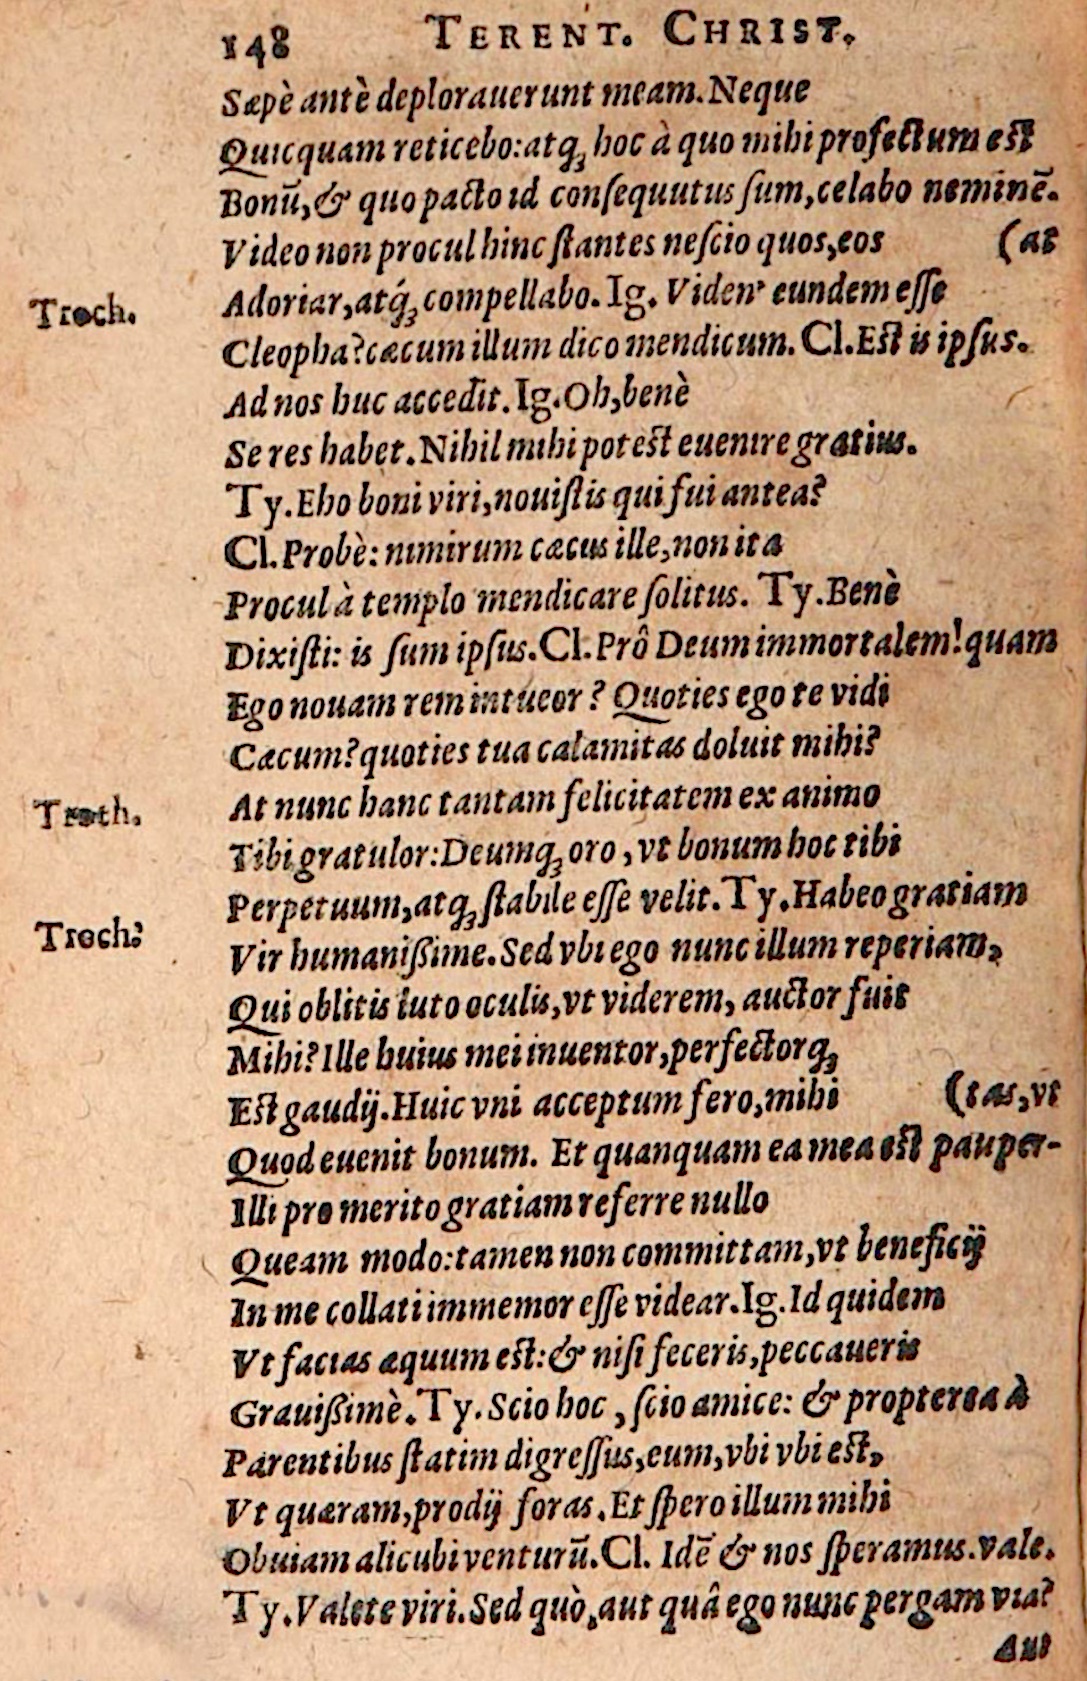 148 TERENT. CHRIST.
Sæpè antè deplorauerunt meam. Neque
Quicquam reticebo: atq; hoc à quo mihi profectum est
Bonū, & quo pacto id consequutus sum, celabo neminē.
Video non procul hinc stantes nescio quos, eos (at
Troch. Adoriar, atq́; compellabo. Ig. Viden' eundem esse
Cleopha? cæcum illum dico mendicum. Cl. Est is ipsus.
Ad nos huc accedit. Ig. Oh, benè
Se res habet. Nihil mihi potest euenire gratius.
Ty. Eho boni viri, nouistis qui fui antea?
Cl. Probè: nimirum cæcus ille, non ita
Procul à templo mendicare solitus. Ty. Benè
Dixisti: is sum ipsus. Cl. Prô Deum immortalem! quam
Ego nouam rem intueor? Quoties ego te vidi
Cæcum? quoties tua calamitas doluit mihi?
Troth. At nunc hanc tantam felicitatem ex animo
Tibi gratulor: Deumq; oro, vt bonum hoc tibi
Perpetuum, atq; stabile esse velit. Ty. Habeo gratiam
Troch. Vir humanißime. Sed vbi ego nunc illum reperiam,
Qui oblitis luto oculis, vt viderem, auctor fuit
Mihi? Ille huius mei inuentor, perfectorq;
Est gaudij. Huic vni acceptum fero, mihi (tas, vt
Quod euenit bonum. Et quanquam ea mea est pauper-
Illi pro merito gratiam referre nullo
Queam modo: tamen non committam, vt beneficij
In me collati immemor esse videar. Ig. Id quidem
Vt facias æquum est: & nisi feceris, peccaueris
Grauißimè. Ty. Scio hoc, scio amice: & propterea à
Parentibus statim digressus, eum, vbi vbi est,
Vt quæram, prodij foras. Et spero illum mihi
Obuiam alicubi venturū. Cl. Idē & nos speramus. vale.
Ty. Valete viri. Sed quò, aut quâ ego nunc pergam via?
Aut